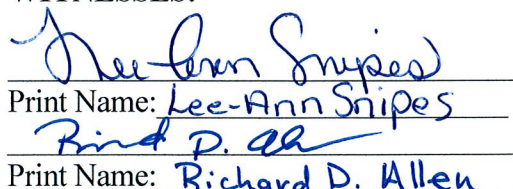 WITNESSES:
Lee-Ann Snipes
Print Name: Lee-Ann Snipes
Print Name: Richard D. Allen